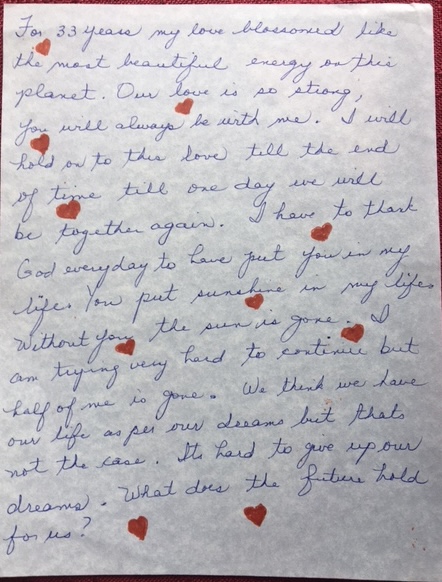 For 33 years my love blossomed like
the most beautiful energy on this
planet. Our love is so strong,
you will always be with me. I will
hold on to this love till the end
of time till one day we will
be together again. I have to thank
God everyday to have put you in my
life. You put sunshine in my life.
Without you the sun is gone. I
am trying very hard to continue but
half of me is gone. We think we have
our life as per our dreams but thats
not the case. Its hard to give up our
dreams. What does the future hold
for us?